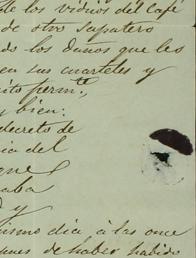 de los vidrios del Café
de otro zapatero
do los daños que les
en sus cuarteles y
ito perm.te
y bien:
decreto de
ia del
ene
aba
y
ismo dia á las once
ues de haber habido